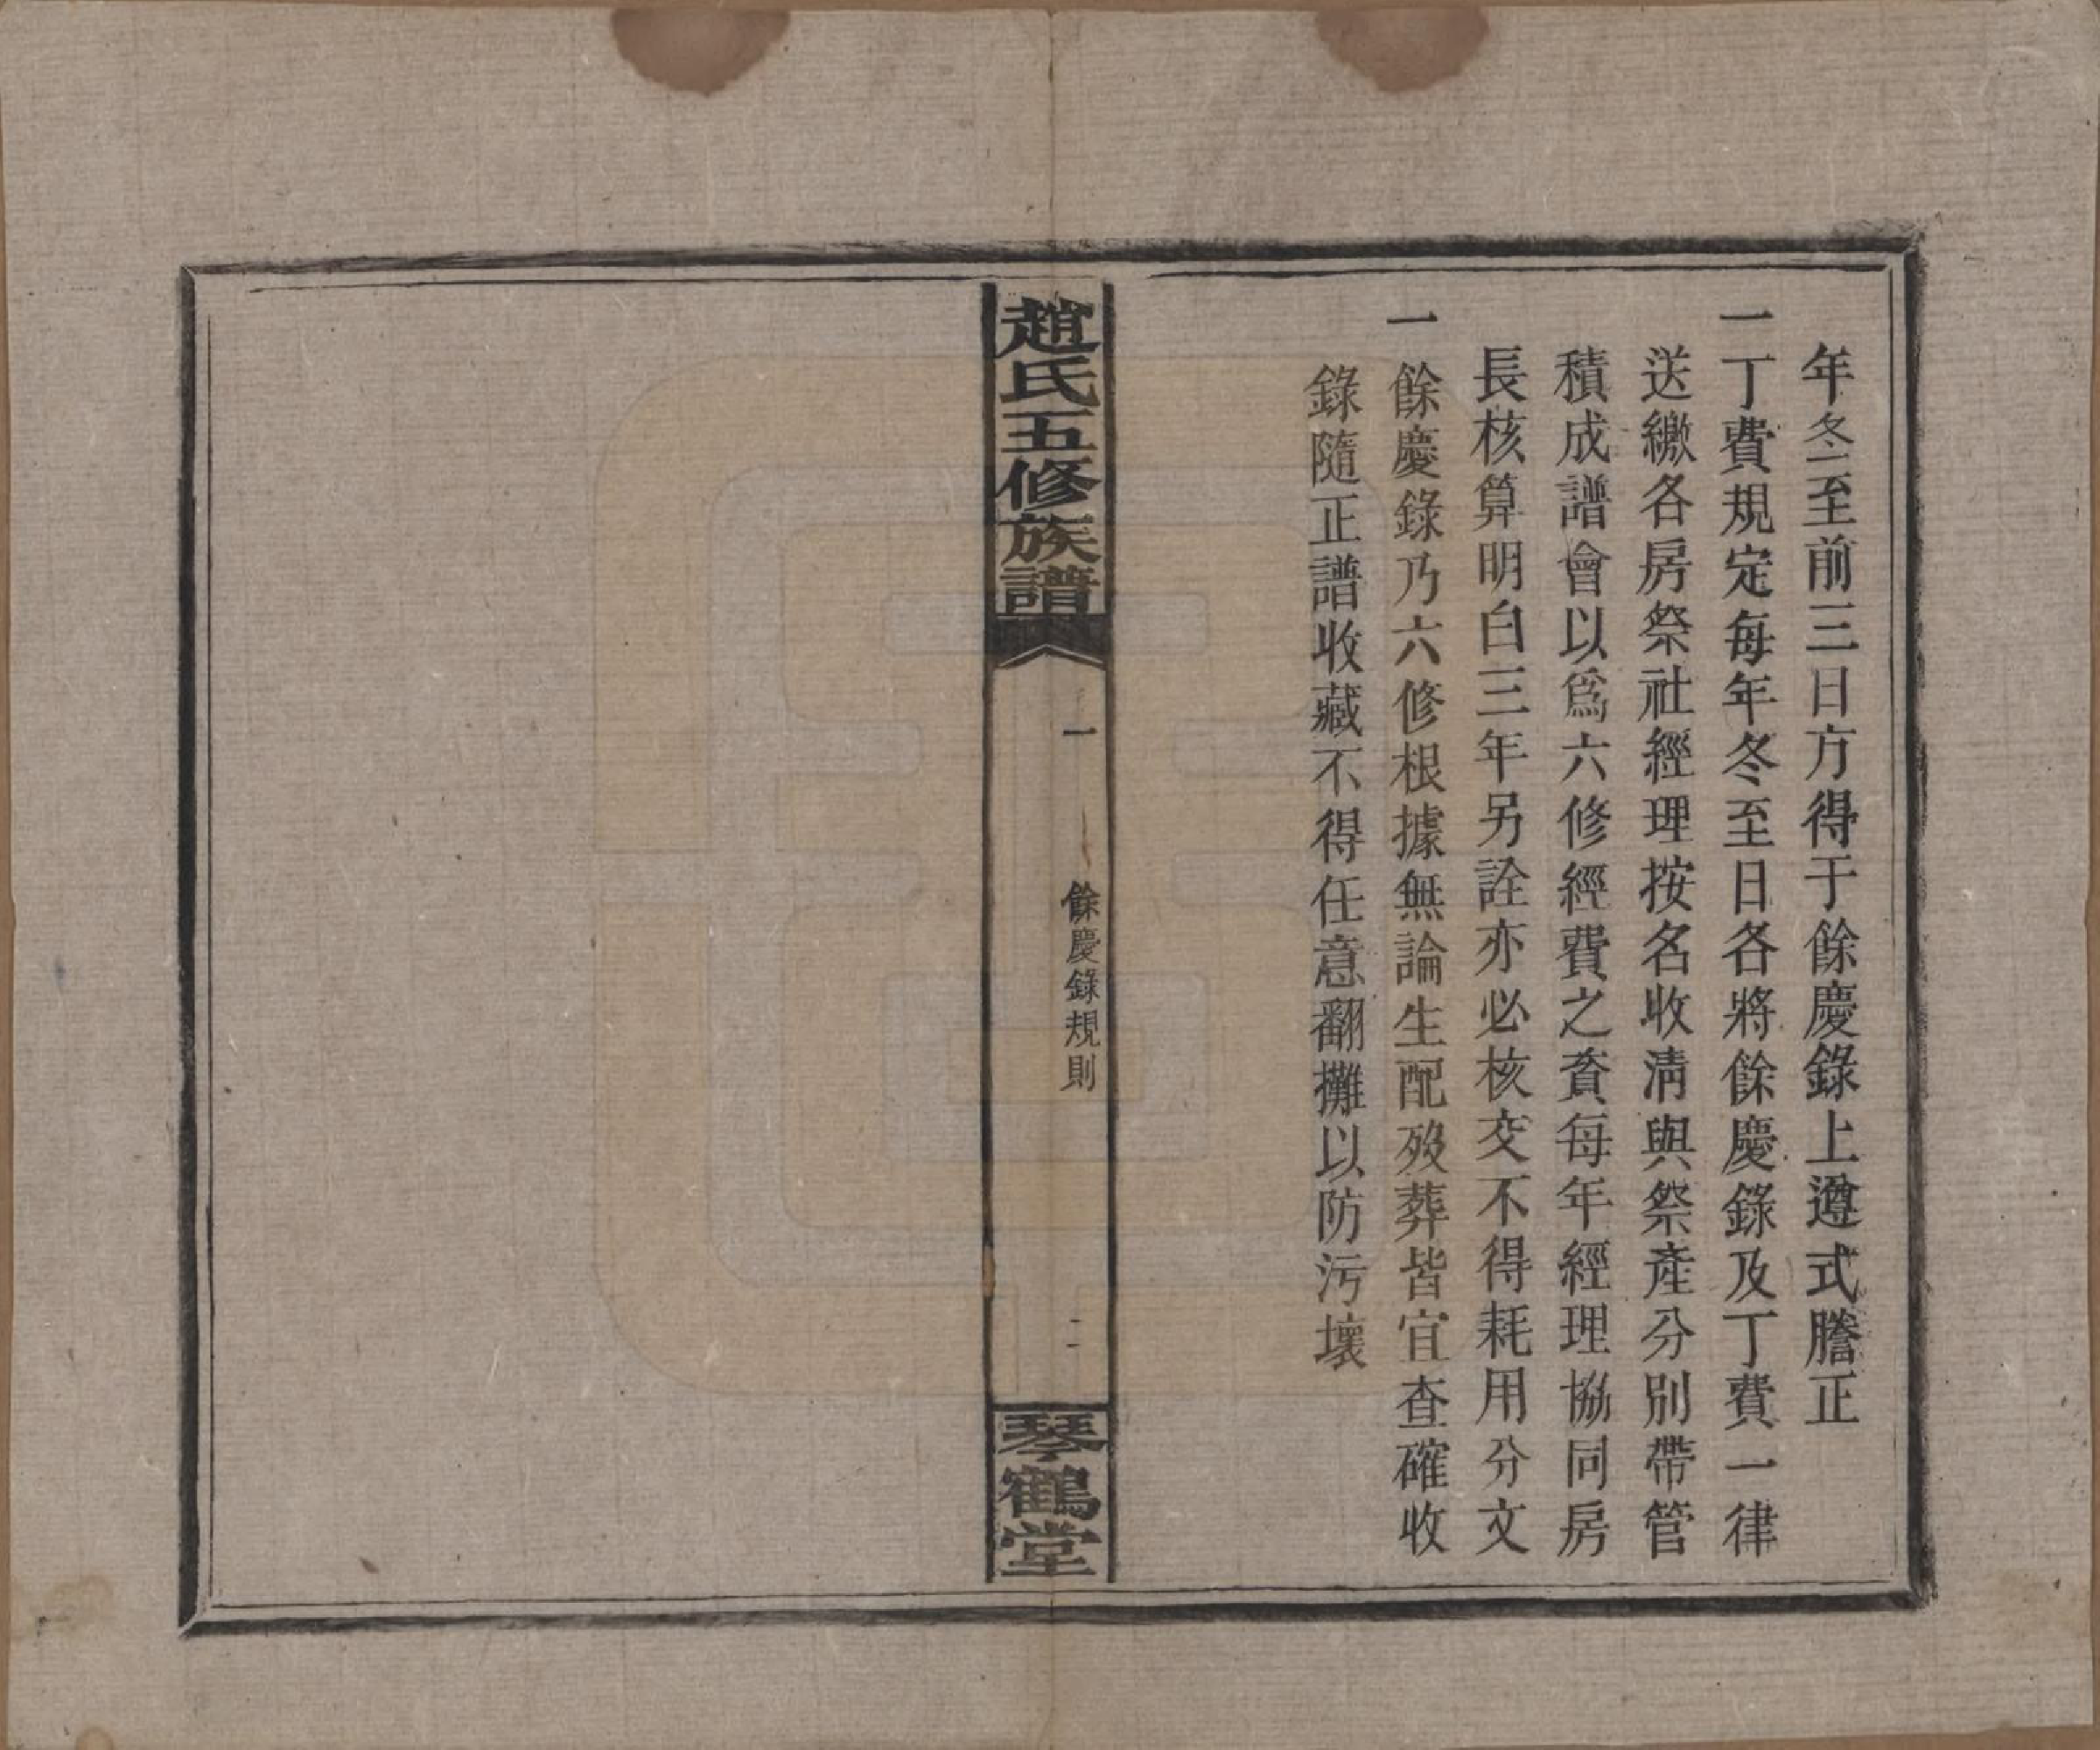 年冬至前三日方得于餘慶錄上遵式謄正
一丁費規定每年冬至日各將餘慶錄及丁費一律
送繳各房祭社經理按名收清與祭產分別帶管
積成譜會以為六修經費之資每年經理協同房
長核算明白三年另詮亦必核交不得耗用分文
一餘慶錄乃六修根據無論生配歿葬皆宜查確收
錄隨正譜收藏不得任意翻攤以防污壞
趙氏五修族譜
一
餘慶錄規則
二
琴鶴堂